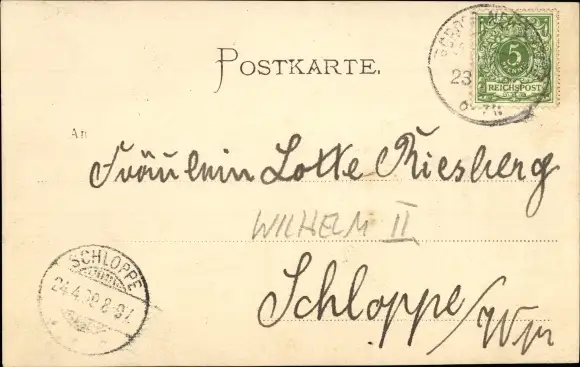 POSTKARTE.
5
REICHSPOST
23
An
Fräulein Lotte Riesberg
WILHELM II
Schloppe/Wpr
SCHLOPPE